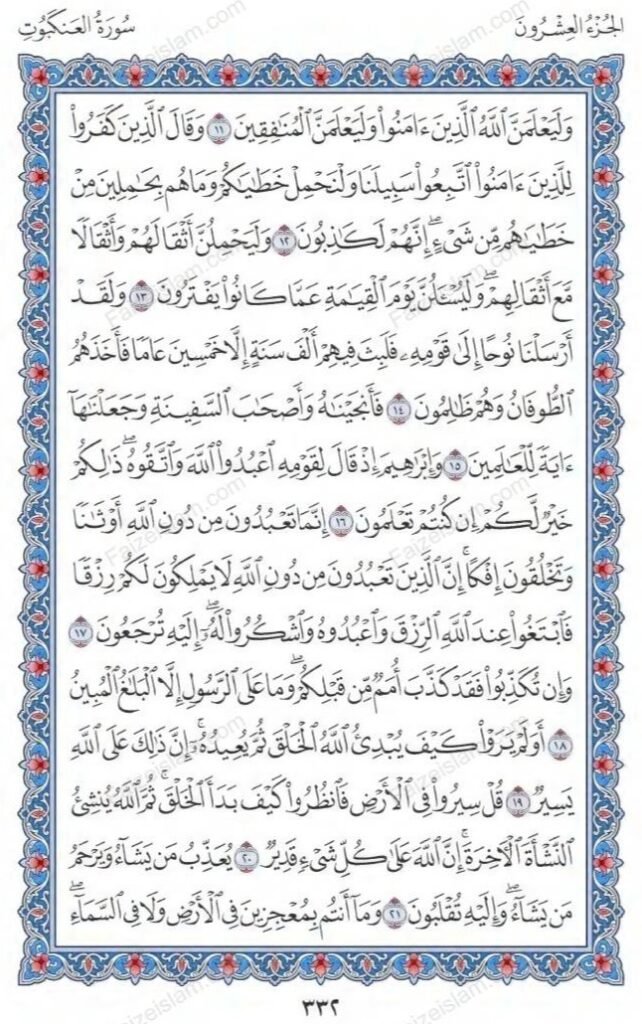 الجُزْءُ العِشْرُونَ
سُورَةُ العَنكَبُوتِ
وَلَيَعْلَمَنَّ ٱللَّهُ ٱلَّذِينَ ءَامَنُوا۟ وَلَيَعْلَمَنَّ ٱلْمُنَٰفِقِينَ ١١ وَقَالَ ٱلَّذِينَ كَفَرُوا۟
لِلَّذِينَ ءَامَنُوا۟ ٱتَّبِعُوا۟ سَبِيلَنَا وَلْنَحْمِلْ خَطَٰيَٰكُمْ وَمَا هُم بِحَٰمِلِينَ مِنْ
خَطَٰيَٰهُم مِّن شَىْءٍ ۖ إِنَّهُمْ لَكَٰذِبُونَ ١٢ وَلَيَحْمِلُنَّ أَثْقَالَهُمْ وَأَثْقَالًا
مَّعَ أَثْقَالِهِمْ ۖ وَلَيُسْـَٔلُنَّ يَوْمَ ٱلْقِيَٰمَةِ عَمَّا كَانُوا۟ يَفْتَرُونَ ١٣ وَلَقَدْ
أَرْسَلْنَا نُوحًا إِلَىٰ قَوْمِهِۦ فَلَبِثَ فِيهِمْ أَلْفَ سَنَةٍ إِلَّا خَمْسِينَ عَامًا فَأَخَذَهُمُ
ٱلطُّوفَانُ وَهُمْ ظَٰلِمُونَ ١٤ فَأَنجَيْنَٰهُ وَأَصْحَٰبَ ٱلسَّفِينَةِ وَجَعَلْنَٰهَآ
ءَايَةً لِّلْعَٰلَمِينَ ١٥ وَإِبْرَٰهِيمَ إِذْ قَالَ لِقَوْمِهِ ٱعْبُدُوا۟ ٱللَّهَ وَٱتَّقُوهُ ۖ ذَٰلِكُمْ
خَيْرٌ لَّكُمْ إِن كُنتُمْ تَعْلَمُونَ ١٦ إِنَّمَا تَعْبُدُونَ مِن دُونِ ٱللَّهِ أَوْثَٰنًا
وَتَخْلُقُونَ إِفْكًا ۚ إِنَّ ٱلَّذِينَ تَعْبُدُونَ مِن دُونِ ٱللَّهِ لَا يَمْلِكُونَ لَكُمْ رِزْقًا
فَٱبْتَغُوا۟ عِندَ ٱللَّهِ ٱلرِّزْقَ وَٱعْبُدُوهُ وَٱشْكُرُوا۟ لَهُۥٓ ۖ إِلَيْهِ تُرْجَعُونَ ١٧
وَإِن تُكَذِّبُوا۟ فَقَدْ كَذَّبَ أُمَمٌ مِّن قَبْلِكُمْ ۖ وَمَا عَلَى ٱلرَّسُولِ إِلَّا ٱلْبَلَٰغُ ٱلْمُبِينُ
١٨ أَوَلَمْ يَرَوْا۟ كَيْفَ يُبْدِئُ ٱللَّهُ ٱلْخَلْقَ ثُمَّ يُعِيدُهُۥٓ ۚ إِنَّ ذَٰلِكَ عَلَى ٱللَّهِ
يَسِيرٌ ١٩ قُلْ سِيرُوا۟ فِى ٱلْأَرْضِ فَٱنظُرُوا۟ كَيْفَ بَدَأَ ٱلْخَلْقَ ۚ ثُمَّ ٱللَّهُ يُنشِئُ
ٱلنَّشْأَةَ ٱلْءَاخِرَةَ ۚ إِنَّ ٱللَّهَ عَلَىٰ كُلِّ شَىْءٍ قَدِيرٌ ٢٠ يُعَذِّبُ مَن يَشَآءُ وَيَرْحَمُ
مَن يَشَآءُ ۖ وَإِلَيْهِ تُقْلَبُونَ ٢١ وَمَآ أَنتُم بِمُعْجِزِينَ فِى ٱلْأَرْضِ وَلَا فِى ٱلسَّمَآءِ ۖ
٣٣٢
Faizeislam.com